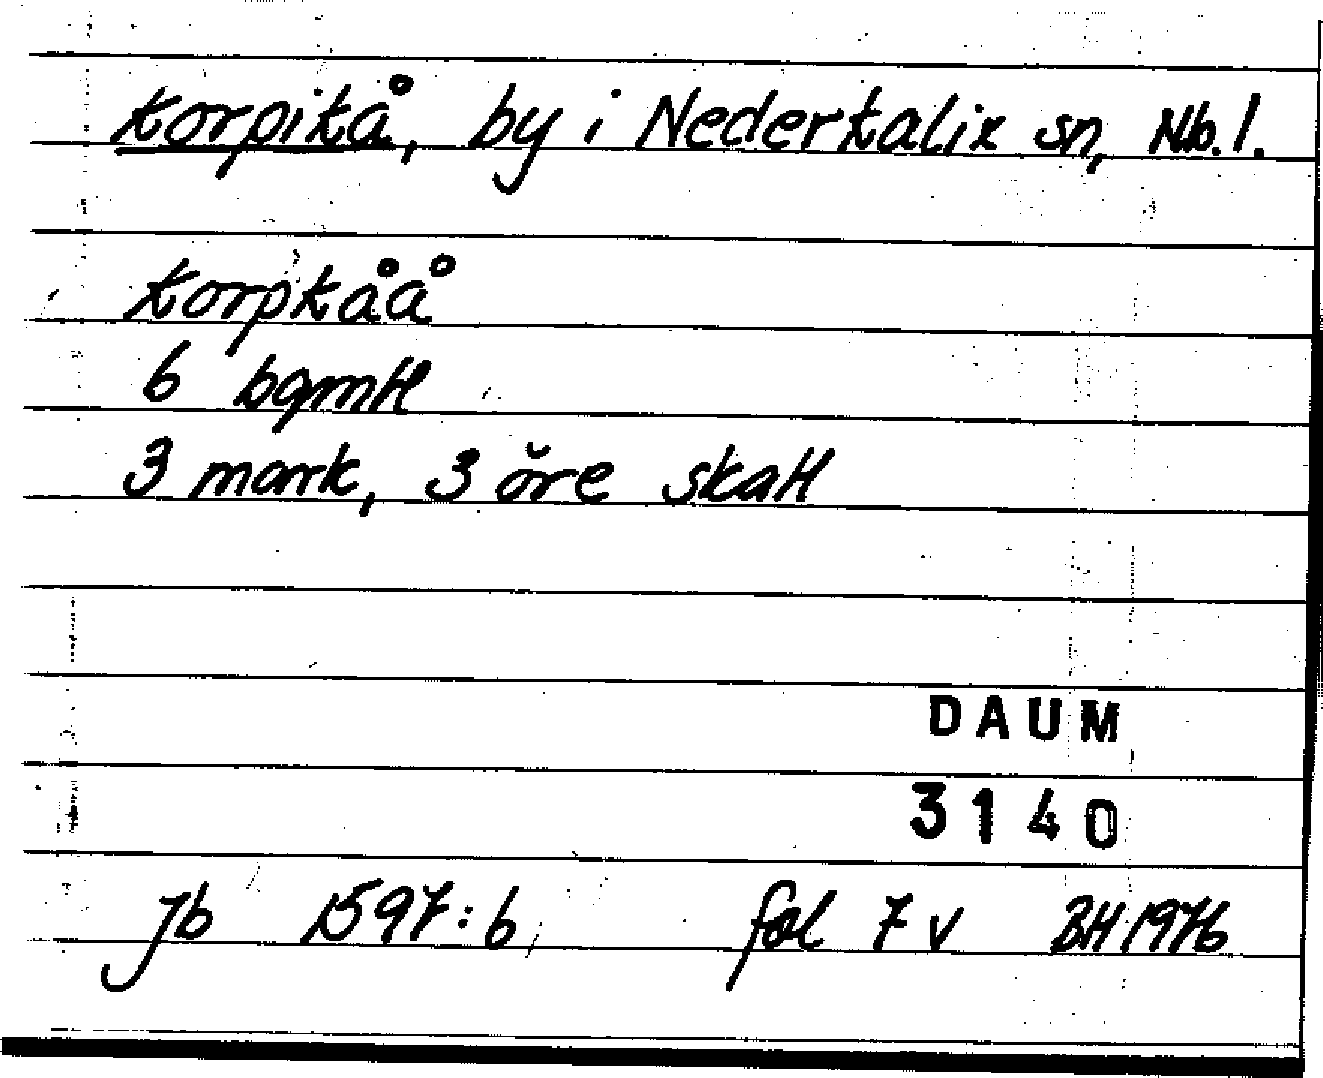 Korpikå, by i Nederkalix sn, Nb. l.
Korpkåå
6 bgmtl
3 mark, 3 öre skatt
DAUM
3140
Jb 1597:6 fol 7 v BH 1976